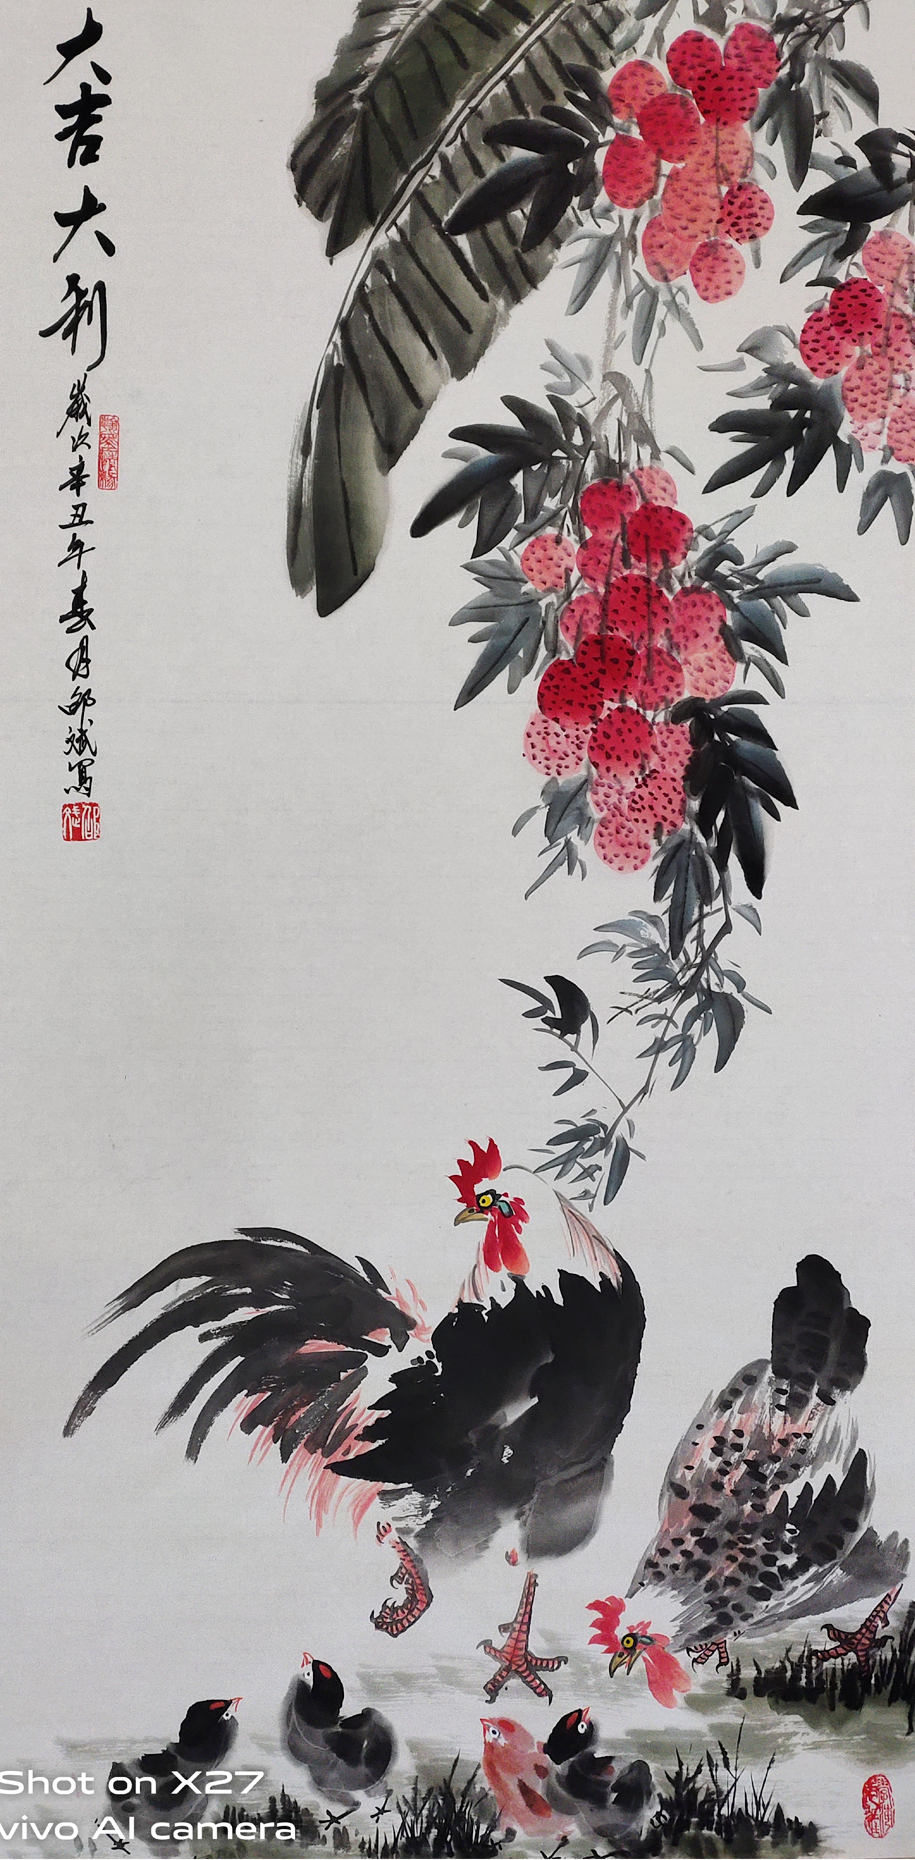 大吉大利
歲次辛丑年春月邵斌寫
Shot on X27
vivo AI camera